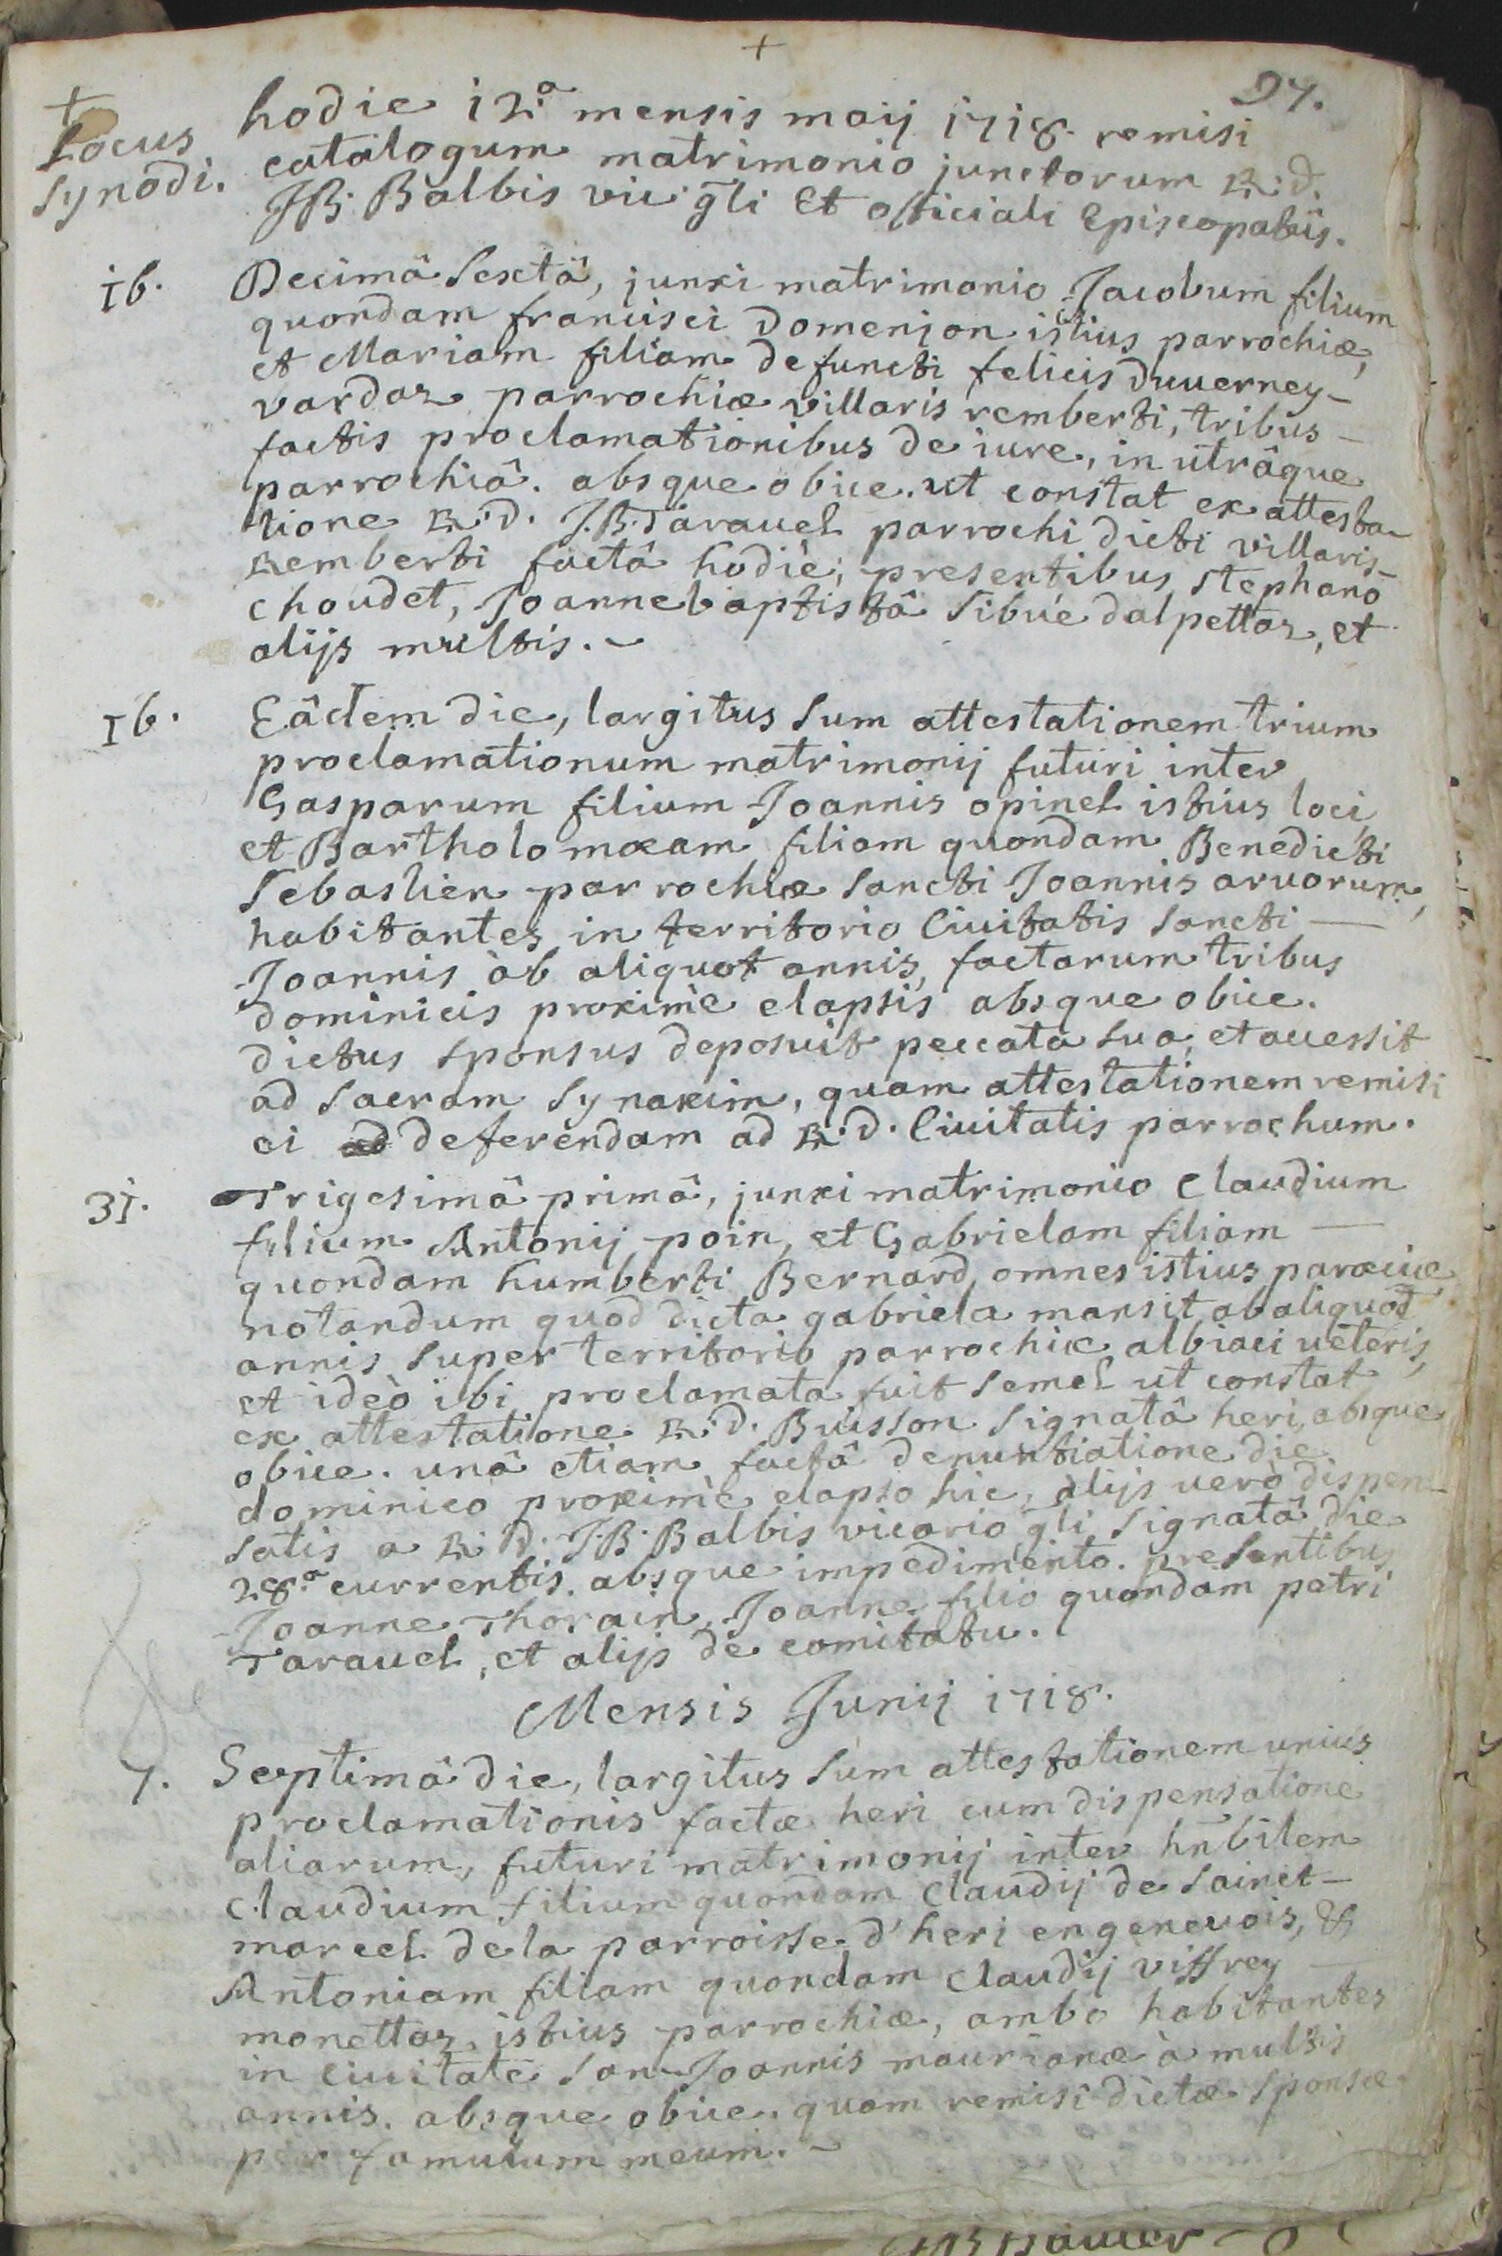 +
97.
+ Locus
Synodi.
hodie 12.a mensis maij 1718. remisi
catalogum matrimonio junctorum R.D.
JB. Balbis vic. gli Et officiali Episcopatûs.
16. Decimâ Sextâ, junxi matrimonio Jacobum filium
quondam francisci Domenjon istius parrochiæ,
et Mariam filiam defuncti felicis duverney-
vardaz parrochiæ villaris remberti, tribus -
factis proclamationibus de iure, in utrâque
parrochiâ. absque obice. ut constat ex attesta-
tione R.D. J.B. Taravel parrochi dicti villaris-
Remberti factâ hodiè; presentibus stephano
choudet, Joannebaptistâ Sibué dalpettaz, et
alijs multis.
16. Eâdem die, largitus sum attestationem trium
proclamationum matrimonij futuri inter
Gasparum filium Joannis opinel istius loci,
et Bartholomæam filiam quondam Benedicti
Sebastien parrochiæ Sancti Joannis arvorum,
habitantes in territorio Civitatis Sancti —
Joannis ab aliquot annis, factarum tribus
dominicis proximè elapsis absque obice.
dictus sponsus deposuit peccata sua, et accessit
ad Sacram Synaxim, quam attestationem remisi
ei ad deferendam ad R.D. Civitatis parrochum.
31. Trigesimâ primâ, junxi matrimonio Claudium
filium Antonij poin, et Gabrielam filiam —
quondam humberti Bernard, omnes istius parœciæ
notandum quod dicta gabriela mansit ab aliquot
annis super territorio parrochiæ albiaci veteris,
et ideò ibi proclamata fuit semel ut constat
ex attestatione R.D. Buisson signatâ heri, absque
obice. unâ etiam factâ denuntiatione die
dominico proximè elapso hic, alijs verò dispen-
satis a R.D. J.B. Balbis vicario gli signatâ die
28.a currentis. absque impedimento. presentibus
Joanne Thorain, Joanne filio quondam petri
Taravel, et alijs de comitatu.
Mensis Junij 1718.
7. Septimâ die, largitus sum attestationem unius
proclamationis factæ heri cum dispensatione
aliarum, futuri matrimonij inter hnbilem
claudium filium quondam claudij de sainct-
marcel de la parroisse d'heri en genevois, &
Antoniam filiam quondam claudij viffrey
monettaz istius parrochiæ, ambo habitantes
in civitate San Joannis maurianæ à multis
annis. absque obice. quam remisi dictæ sponsæ
per famulum meum.